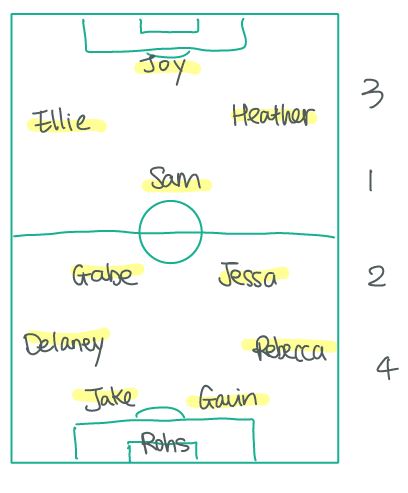 Joy
Ellie Heather 3
Sam 1
Gabe Jessa 2
Delaney Rebecca
Jake Gavin 4
Rohs